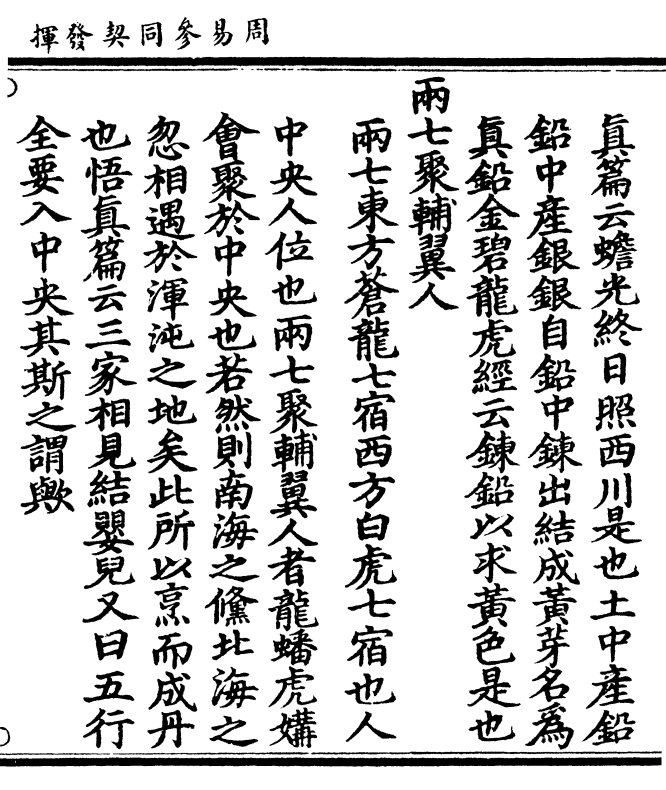 周易參同契發揮
真篇云蟾光終日照西川是也土中產鉛
鉛中產銀銀自鉛中鍊出結成黃芽名爲
真鉛金碧龍虎經云鍊鉛以求黃色是也
兩七聚輔翼人
兩七東方蒼龍七宿西方白虎七宿也人
中央人位也兩七聚輔翼人者龍蟠虎媾
會聚於中央也若然則南海之儵北海之
忽相遇於渾沌之地矣此所以烹而成丹
也悟真篇云三家相見結嬰兒又曰五行
全要入中央其斯之謂歟